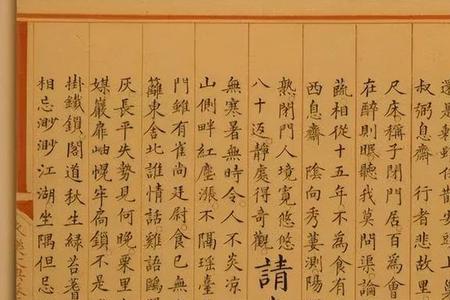 叔弼息齋 行者悲故里
尺床稱子閉門居百為會
在醉則瞑聽我莫問渠論
蔬相從十五年不為食有
西息齋 陰向秀蔞測陽
熟閉門人境寬悠悠
八十返靜處得奇觀
請
無寒暑無時令人不炎涼
山側畔紅塵漲不隔瑤臺
門雖有雀尚廷尉食已無
籬東舍北誰情話雞語鷗
灰長平失勢見何晚栗里
媒巖扉岫幌牢扃鎖不是
掛鐵鎖閣道秋生綠苔著
相忘渺渺江湖坐隅但忌